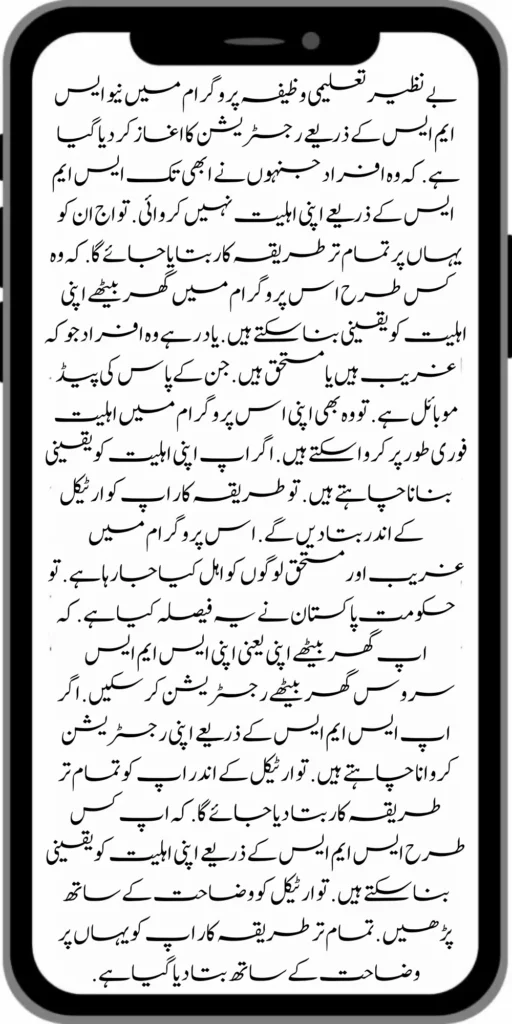 بے نظیر تعلیمی وظیفہ پروگرام میں نیو ایس
ایم ایس کے ذریعے رجسٹریشن کا اغاز کر دیا گیا
ہے. کہ وہ افراد جنہوں نے ابھی تک ایس ایم
ایس کے ذریعے اپنی اہلیت نہیں کروائی. تو اج ان کو
یہاں پر تمام تر طریقہ کار بتایا جائے گا. کہ وہ
کس طرح اس پروگرام میں گھر بیٹھے اپنی
اہلیت کو یقینی بنا سکتے ہیں. یاد رہے وہ افراد جو کہ
غریب ہیں یا مستحق ہیں. جن کے پاس کی پیڈ
موبائل ہے. تو وہ بھی اپنی اس پروگرام میں اہلیت
فوری طور پر کروا سکتے ہیں. اگر اپ اپنی اہلیت کو یقینی
بنانا چاہتے ہیں. تو طریقہ کار اپ کو ارٹیکل
کے اندر بتا دیں گے. اس پروگرام میں
غریب اور مستحق لوگوں کو اہل کیا جا رہا ہے. تو
حکومت پاکستان نے یہ فیصلہ کیا ہے. کہ
اپ گھر بیٹھے اپنی یعنی اپنی ایس ایم ایس
سروس گھر بیٹھے رجسٹریشن کر سکیں. اگر
اپ ایس ایم ایس کے ذریعے اپنی رجسٹریشن
کروانا چاہتے ہیں. تو ارٹیکل کے اندر اپ کو تمام تر
طریقہ کار بتا دیا جائے گا. کہ اپ کس
طرح ایس ایم ایس کے ذریعے اپنی اہلیت کو یقینی
بنا سکتے ہیں. تو ارٹیکل کو وضاحت کے ساتھ
پڑھیں. تمام تر طریقہ کار اپ کو یہاں پر
وضاحت کے ساتھ بتا دیا گیا ہے.